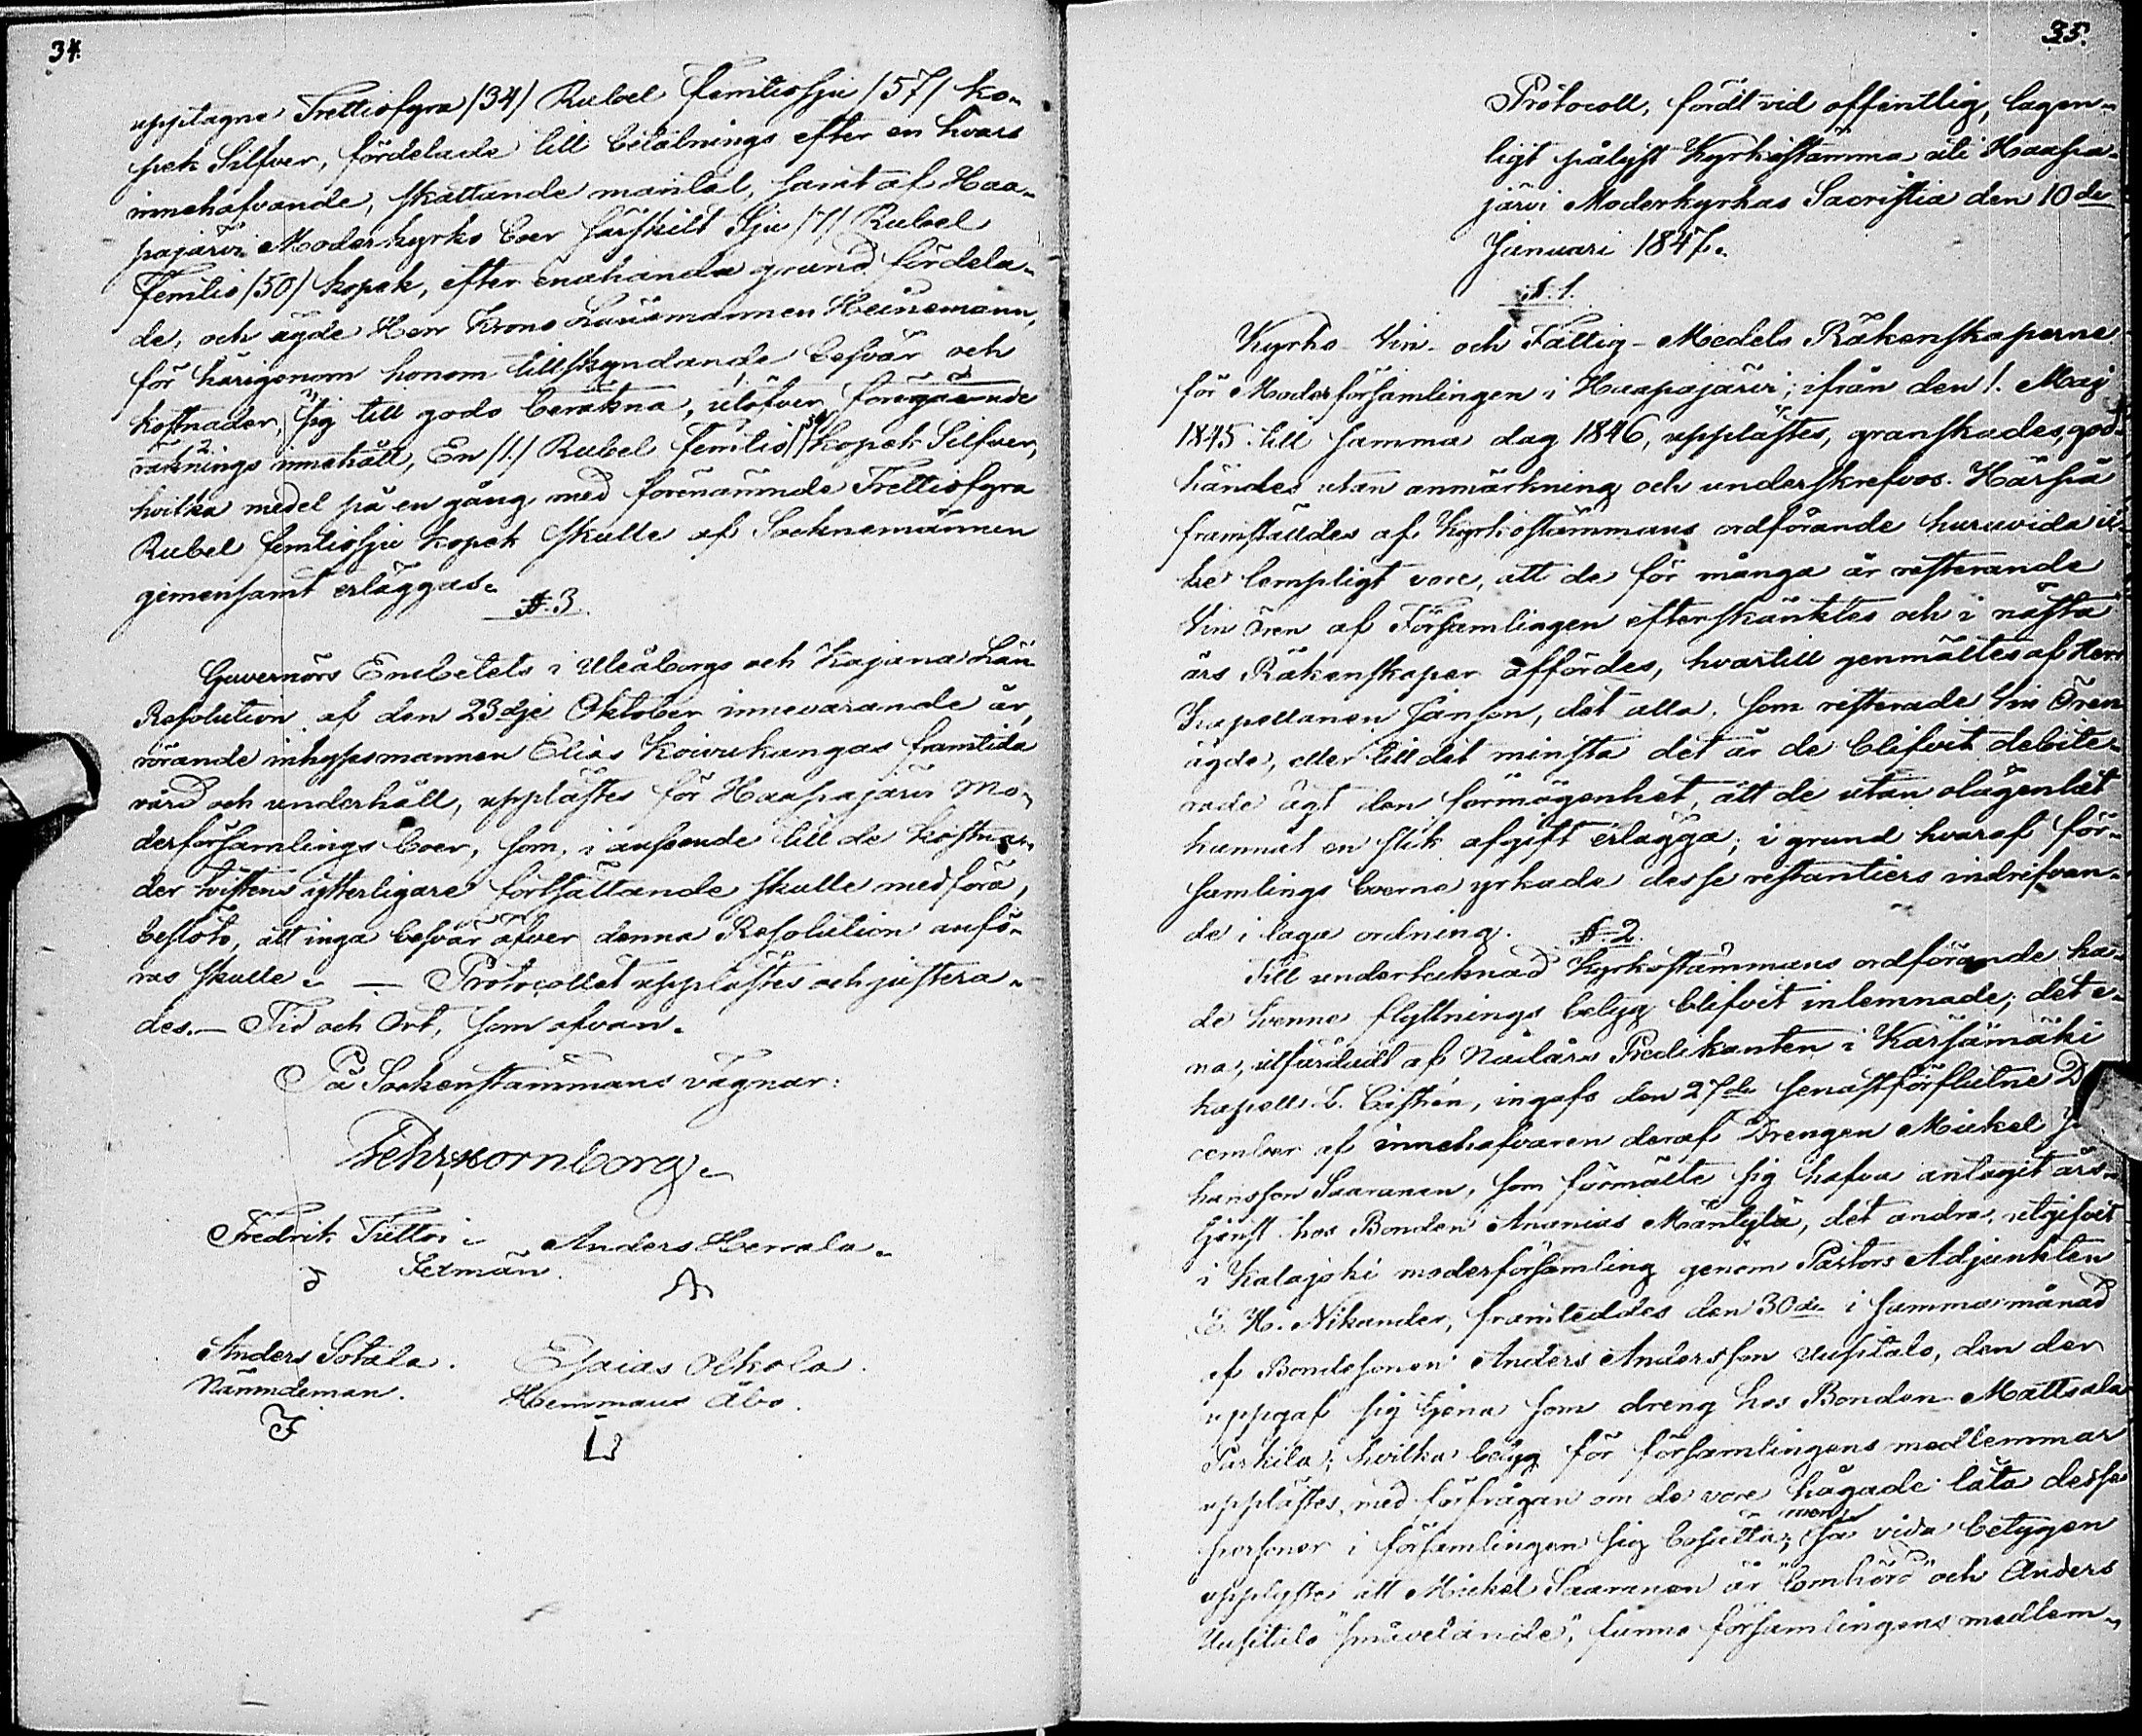 34.
upptagne Trettiofyra /34/ Rubel femtiosju /57/ ko-
pek Silfver, fördelade till betalnings efter en hvars
innehafvande, skattande mantal, samt af Haa-
pajärvi Moderkyrko boer särskilt Sju /7/ Rubel
Femtio /50/ kopek, efter enahanda grund fördela-
de, och ägde Herr Krono Länsmannen Heinemann,
för härigenom honom tillskyndande besvär och
kostnader, sig till godo beräkna, utöfver föregående
räknings innehåll, En /1/ Rubel femtio /50/ kopek Silfver,
hvilka medel på en gång med förenämnde Trettiofyra
Rubel femtiosju kopek skulle af Socknemännen
gemensamt erläggas.
§. 3.
Guvernörs Embetets i Uleåborgs och Kajana Län
Resolution af den 23dje Oktober innevarande år,
rörande inhysesmannen Elias Koivukangas framtida
vård och underhåll, upplästes för Haapajärvi Mo-
derförsamlings boer, som, i anseende till de kostna-
der tvistens ytterligare fortsättande skulle medföra,
beslöto, att inga besvär öfver denna Resolution anfö-
ras skulle. — Protocollet upplästes och justera-
des. — Tid och Ort, som ofvan.
På Sockenstämmans vägnar:
Fehr. Kornborg.
Fredrik Tuttoi Anders Herrala.
Sexmän.
Anders Sotala. Esaias Olkola.
Nämndeman. Hemmans åbo.
35.
Protocoll, fördt vid offentlig, lagen-
ligt pålyst Kyrkostämma uti Haapa-
järvi Moderkyrkas Sacristia den 10de
Januari 1847.
§. 1.
Kyrko- Vin- och Fattig-Medels Räkenskaperne
för Moderförsamlingen i Haapajärvi; ifrån den 1. Maj
1845 till samma dag 1846, upplästes, granskades, god-
kändes utan anmärkning och underskrefvos. Härpå
framställdes af Kyrkostämmans ordförande huruvida ic-
ke lempligt vore, att de för många år resterande
Vin Ören af Församlingen efterskänktes och i nästa
års Räkenskaper affördes, hvartill genmältes af Herr
Kapellanen Janson, det alla, som resterade Vin Ören
ägde, eller till det minsta det år de blifvit debite-
rade ägt den förmögenhet, att de utan olägenhet
kunnat en slik afgift erlägga; i grund hvaraf för-
samlings boerne yrkade desse restantiers indrifvan-
de i laga ordning.
§. 2.
Till undertecknad Kyrkostämmans ordförande ha-
de tvenne flyttnings betyg blifvit inlemnade; det e-
na, utfärdadt af Nådårs Predikanten i Kärsämäki
kapell L. Castrén, ingafs den 27de senastförflutne De
cember af innehafvaren deraf Drengen Mickel Jo
hansson Saaranen, som förmälte sig hafva antagit års-
tjenst hos Bonden Ananias Mäntylä, det andra, utgifvet
i Kalajoki moderförsamling genom Pastors Adjunkten
E. H. Nikander, framleddes den 30de i samma månad
af Bondesonen Anders Andersson Uusitalo, den der
uppgaf sig tjena som dreng hos Bonden Mattsala
Parkila; hvilka betyg för församlingens medlemmar
upplästes, med förfrågan om de vore hågade låta desse
personer i församlingen sig bosätta; men så vida betygen
upplyste att Mickel Saaranen är "lomhörd" och Anders
Uusitalo "småvetande", funno församlingens medlem-